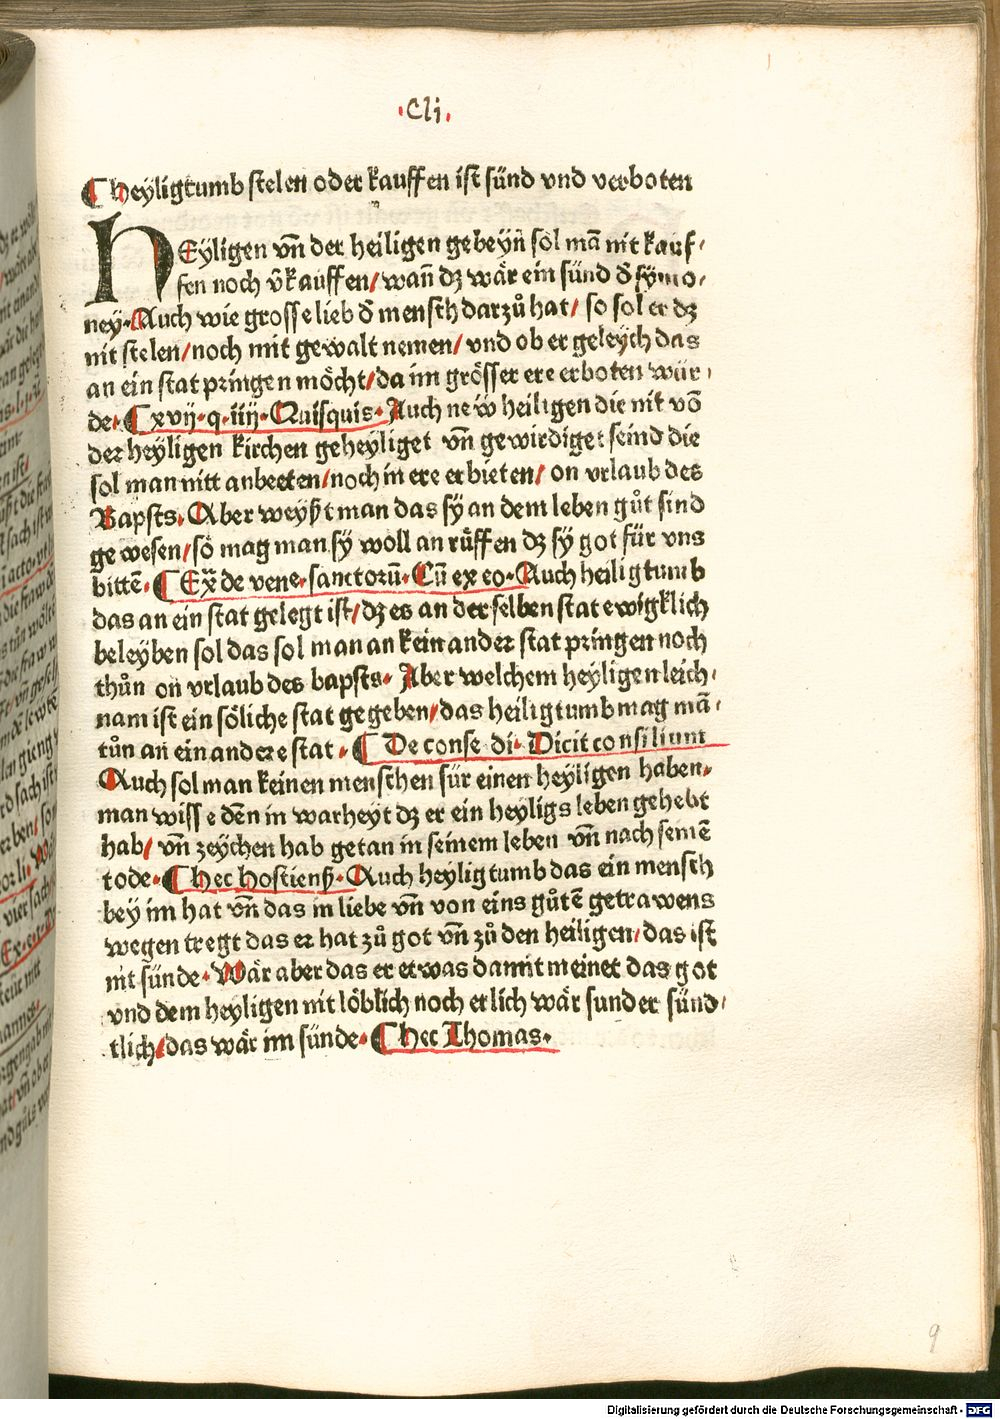 ·Cli·
¶ Heyligtumb stelen oder kauffen ist sünd vnd verboten
HEyligen vñ der heiligen gebeyñ sol mā nit kauf⸗
fen noch v̄kauffen/ wañ dz wär ein sünd d̄ symo⸗
ney· Auch wie grosse lieb d̄ mensch darzů hat/ so sol er dz
nit stelen/ noch mit gewalt nemen/ vnd ob er geleych das
an ein stat pringen möcht/ da im grösser ere erboten wür⸗
de· ¶ xvij· q· iiij· Quisquis· Auch new̄ heiligen die nit vō
der heyligen kirchen geheyliget vñ gewirdiget seind die
sol man nitt anbeeten/ noch in ere erbieten/ on vrlaub des
Bapsts· Aber weyßt man das sy an dem leben gůt sind
gewesen/ so mag man sy woll an růffen dz sy got für vns
bittē· ¶ Ex̄ de vene· sanctorū· Cū ex eo· Auch heiligtumb
das an ein stat gelegt ist/ dz es an der selben stat ewigklich
beleyben sol das sol man an kein ander stat pringen noch
thůn on vrlaub des bapsts· Aber welchem heyligen leich⸗
nam ist ein söliche stat gegeben/ das heiligtumb mag mā
tůn an ein andere stat· ¶ De conse di· Dicit consilium
Auch sol man keinen menschen für einen heyligen haben·
man wisse dēn in warheyt dz er ein heyligs leben gehebt
hab/ vñ zeychen hab getan in seinem leben vñ nach seinē
tode· ¶ hec hostienß· Auch heyligtumb das ein mensch
bey im hat vñ das in liebe vñ von eins gůtē getrawens
wegen tregt das er hat zů got vñ zů den heiligen/ das ist
nit sünde· Wär aber das er etwas damit meinet das got
vnd dem heyligen nit löblich noch erlich wär sunder sünd⸗
tlich/ das wär im sünde· ¶ hec Thomas·
9
Digitalisierung gefördert durch die Deutsche Forschungsgemeinschaft - DFG